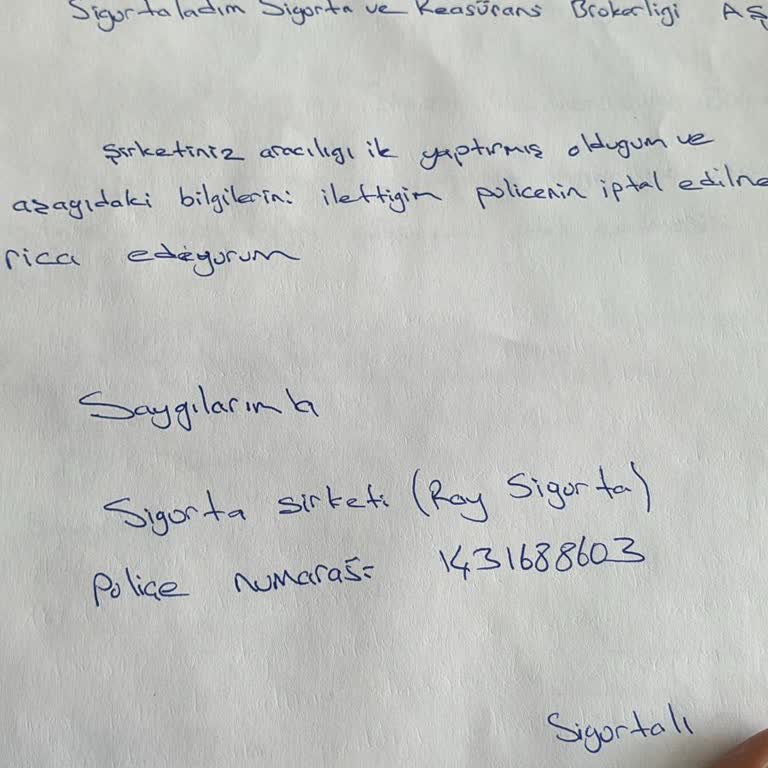 Sigortaladım Sigorta ve Reasürans Brokerligi AŞ
Şirketiniz aracılıgı ile yaptırmış oldugum ve
aşagıdaki bilgilerini ilettigim policenin iptal edilme
rica ediyorum
Saygılarımla
Sigorta şirketi (Ray Sigorta)
Poliçe numarası= 1431688603
Sigortalı